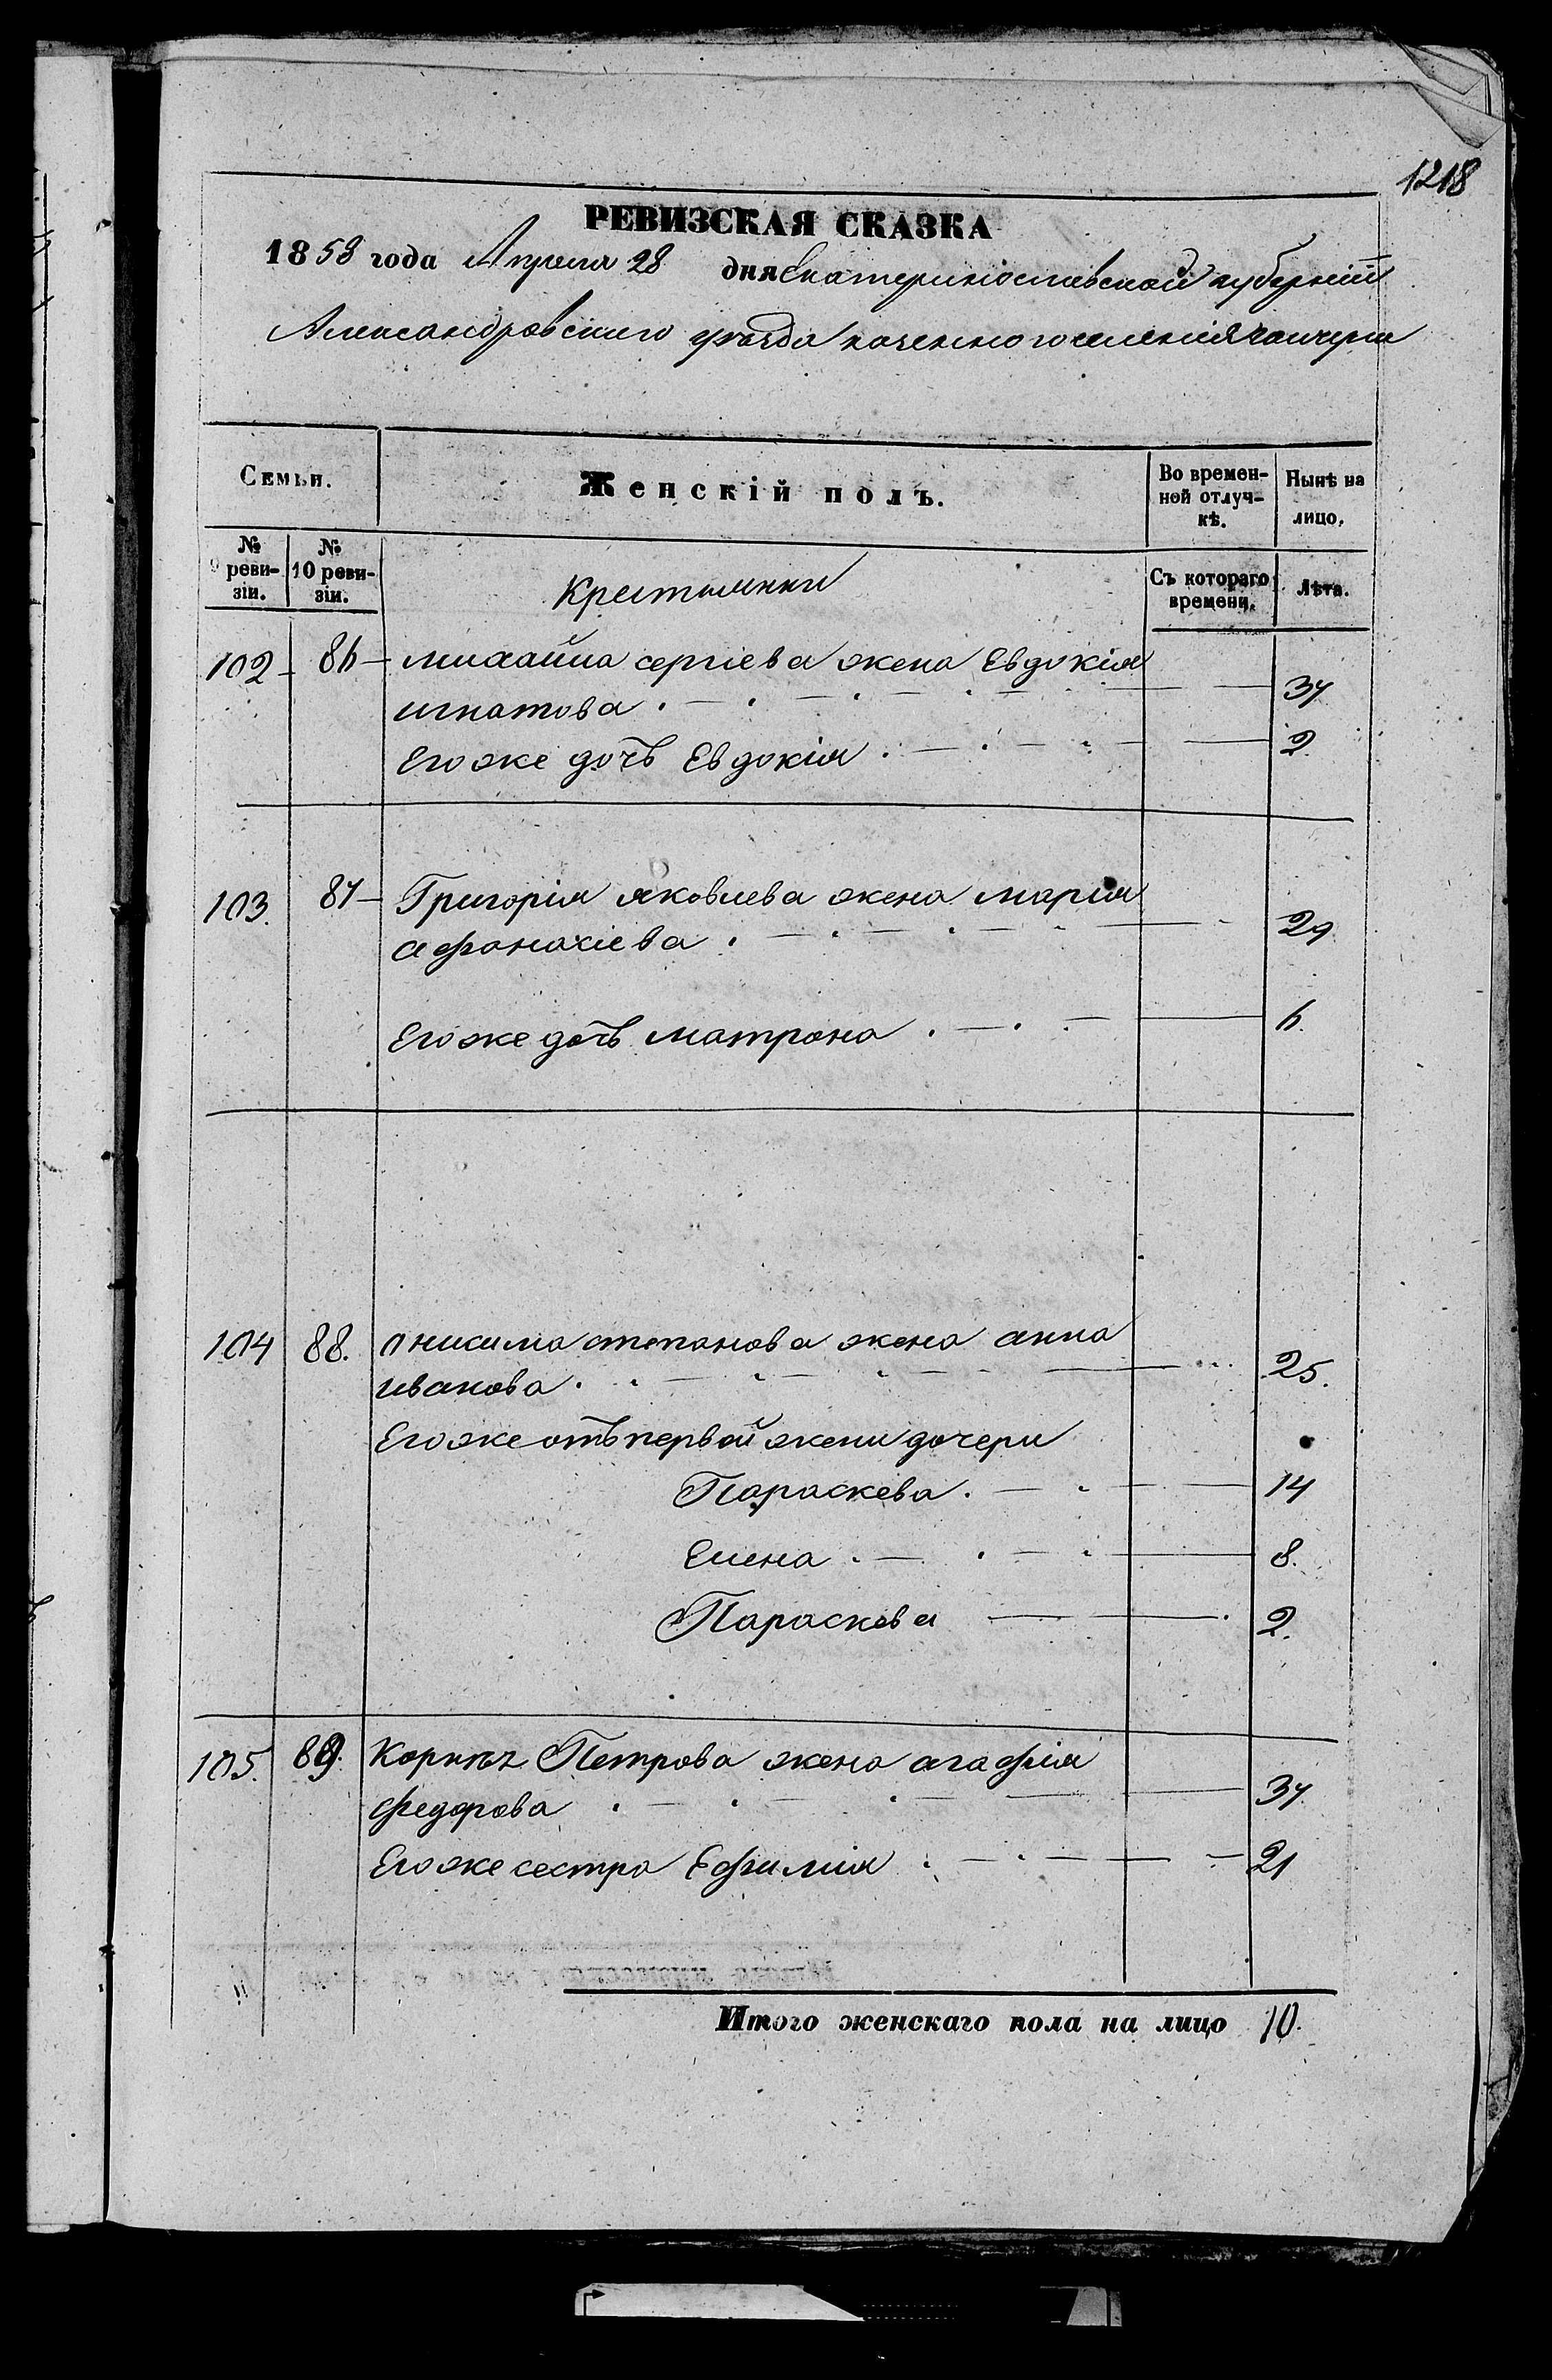 1218
РЕВИЗСКАЯ СКАЗКА
1858 года Апреля 28 дня Екатеринославской губерніи
Александровскаго уѣзда казенного селенія
Семьи. Женскій полъ. Во времен- Нынѣ на
ной отлуч- лицо.
кѣ.
№ № Крестьянки Съ котораго Лѣта.
9 реви- 10 реви- времени.
зіи. зіи.
102 86 михайла сергіева жена Евдокія
игнатова 37
Его же дочь Евдокія 2
103. 87 Григорія яковлева жена марія
афонасіева 29
Его же дочь матрона 6.
104 88. онисима степанова жена анна
иванова 25.
Его же отъ первой жени дочери
Параскева 14
Елена 8.
Параскева 2.
105. 89. Корнѣя Петрова жена агафія
федорова 37
Его же сестра Ефимия 21
Итого женскаго пола на лицо 10.